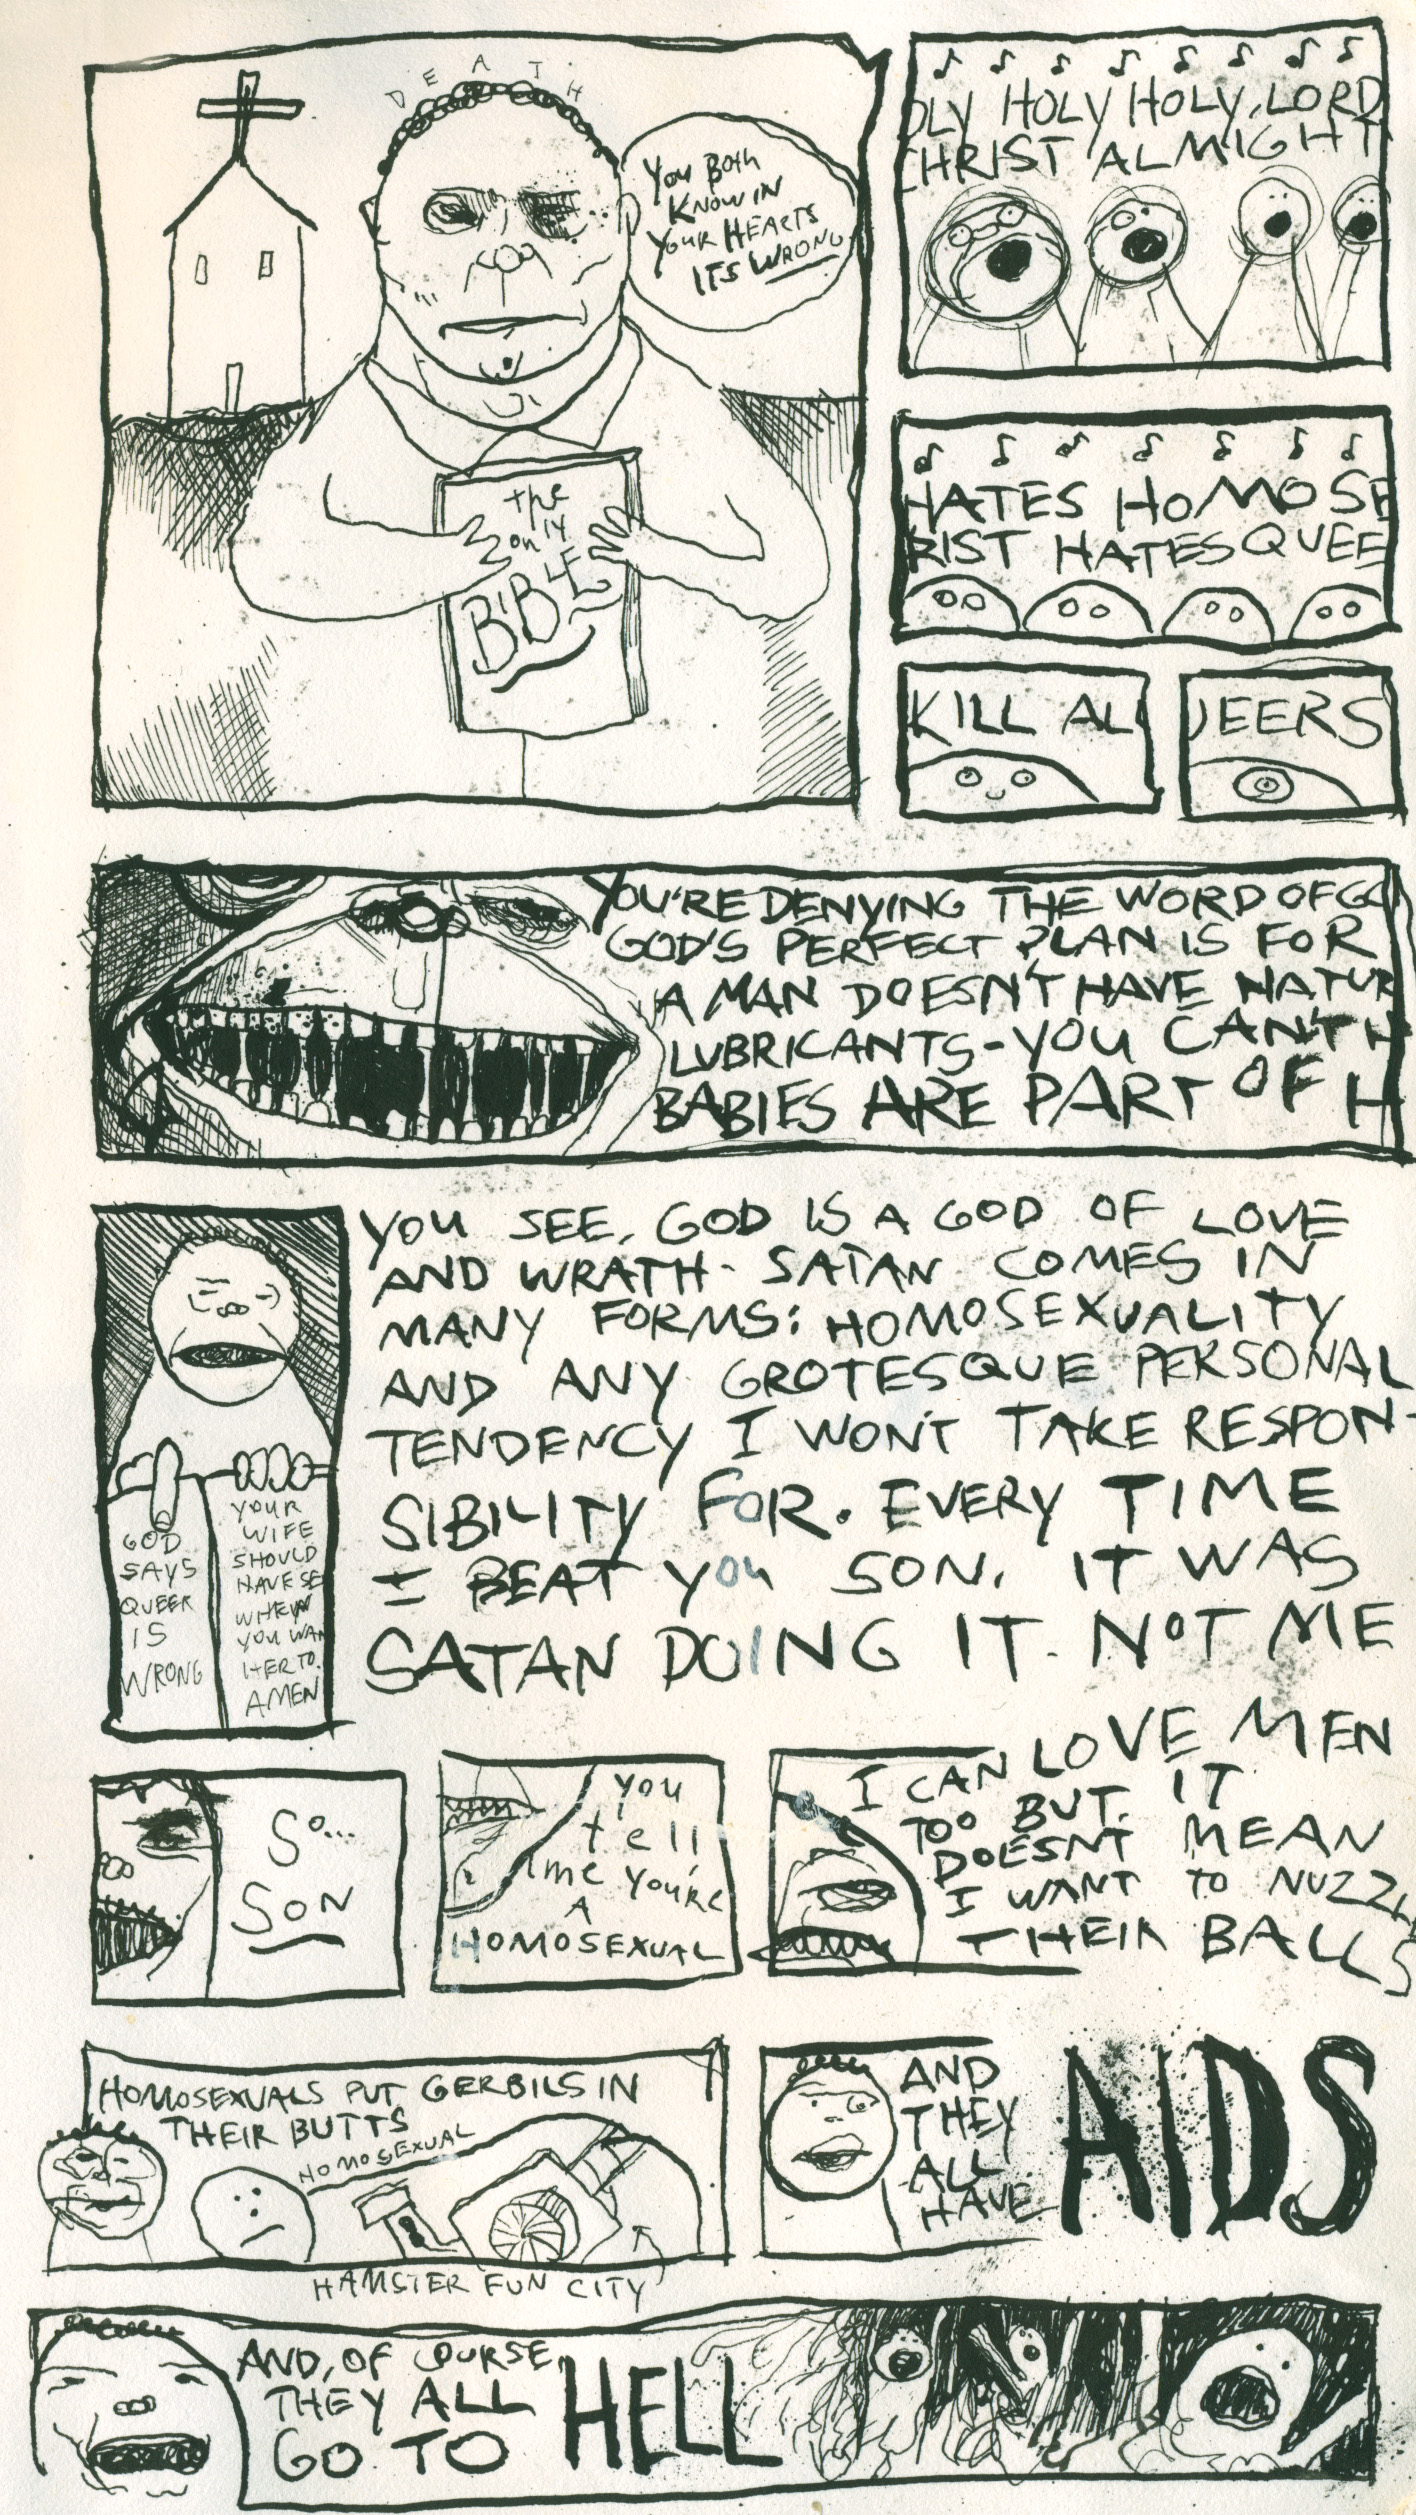 DEATH
You Both
KNOW IN
YOUR HEARTS
ITS WRONG
OLY HOLY HOLY, LORD
CHRIST ALMIGHT
the
only
BIBLE
HATES HOMOSE
RIST HATES QUEE
KILL AL
EERS
YOU'RE DENYING THE WORD OF GO
GOD'S PERFECT PLAN IS FOR
A MAN DOESN'T HAVE NATUR
LUBRICANTS-YOU CAN'T H
BABIES ARE PART OF H
YOU SEE, GOD IS A GOD OF LOVE
AND WRATH- SATAN COMES IN
MANY FORMS: HOMOSEXUALITY
AND ANY GROTESQUE PERSONAL
TENDENCY I WON'T TAKE RESPON-
SIBILITY FOR. EVERY TIME
I BEAT YOU SON. IT WAS
SATAN DOING IT. NOT ME
GOD
SAYS
QUEER
IS
WRONG
YOUR
WIFE
SHOULD
HAVE SE
WHEN
YOU WAN
HER TO.
AMEN
So...
SON
you
tell
me you're
A
HOMOSEXUAL
I CAN LOVE MEN
TOO BUT. IT
DOESNT MEAN
I WANT TO NUZZL
THEIR BALLS
HOMOSEXUALS PUT GERBILS IN
THEIR BUTTS
HOMOSEXUAL
HAMSTER FUN CITY
AND
THEY
ALL
HAVE
AIDS
AND, OF COURSE,
THEY ALL
GO TO
HELL